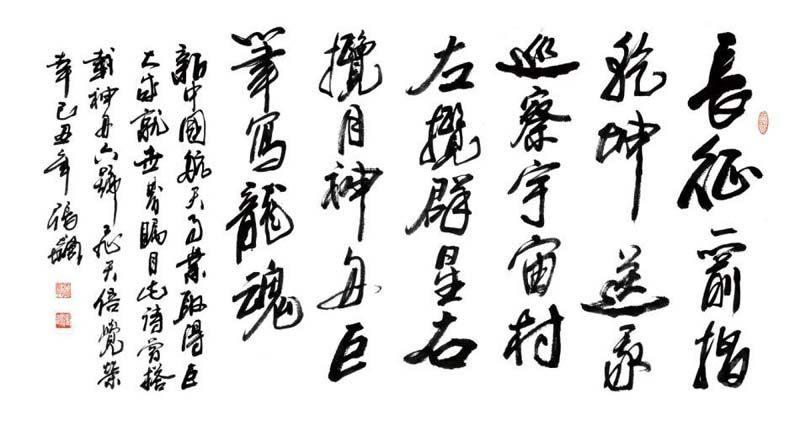 長征一箭指
乾坤送我
巡察宇宙村
左攬群星右
攬月神舟巨
筆寫龍魂
新中國航天事業取得巨
大成就世界矚目此詩曾搭
載神舟六號飛天倍覺榮
幸己丑年張飆